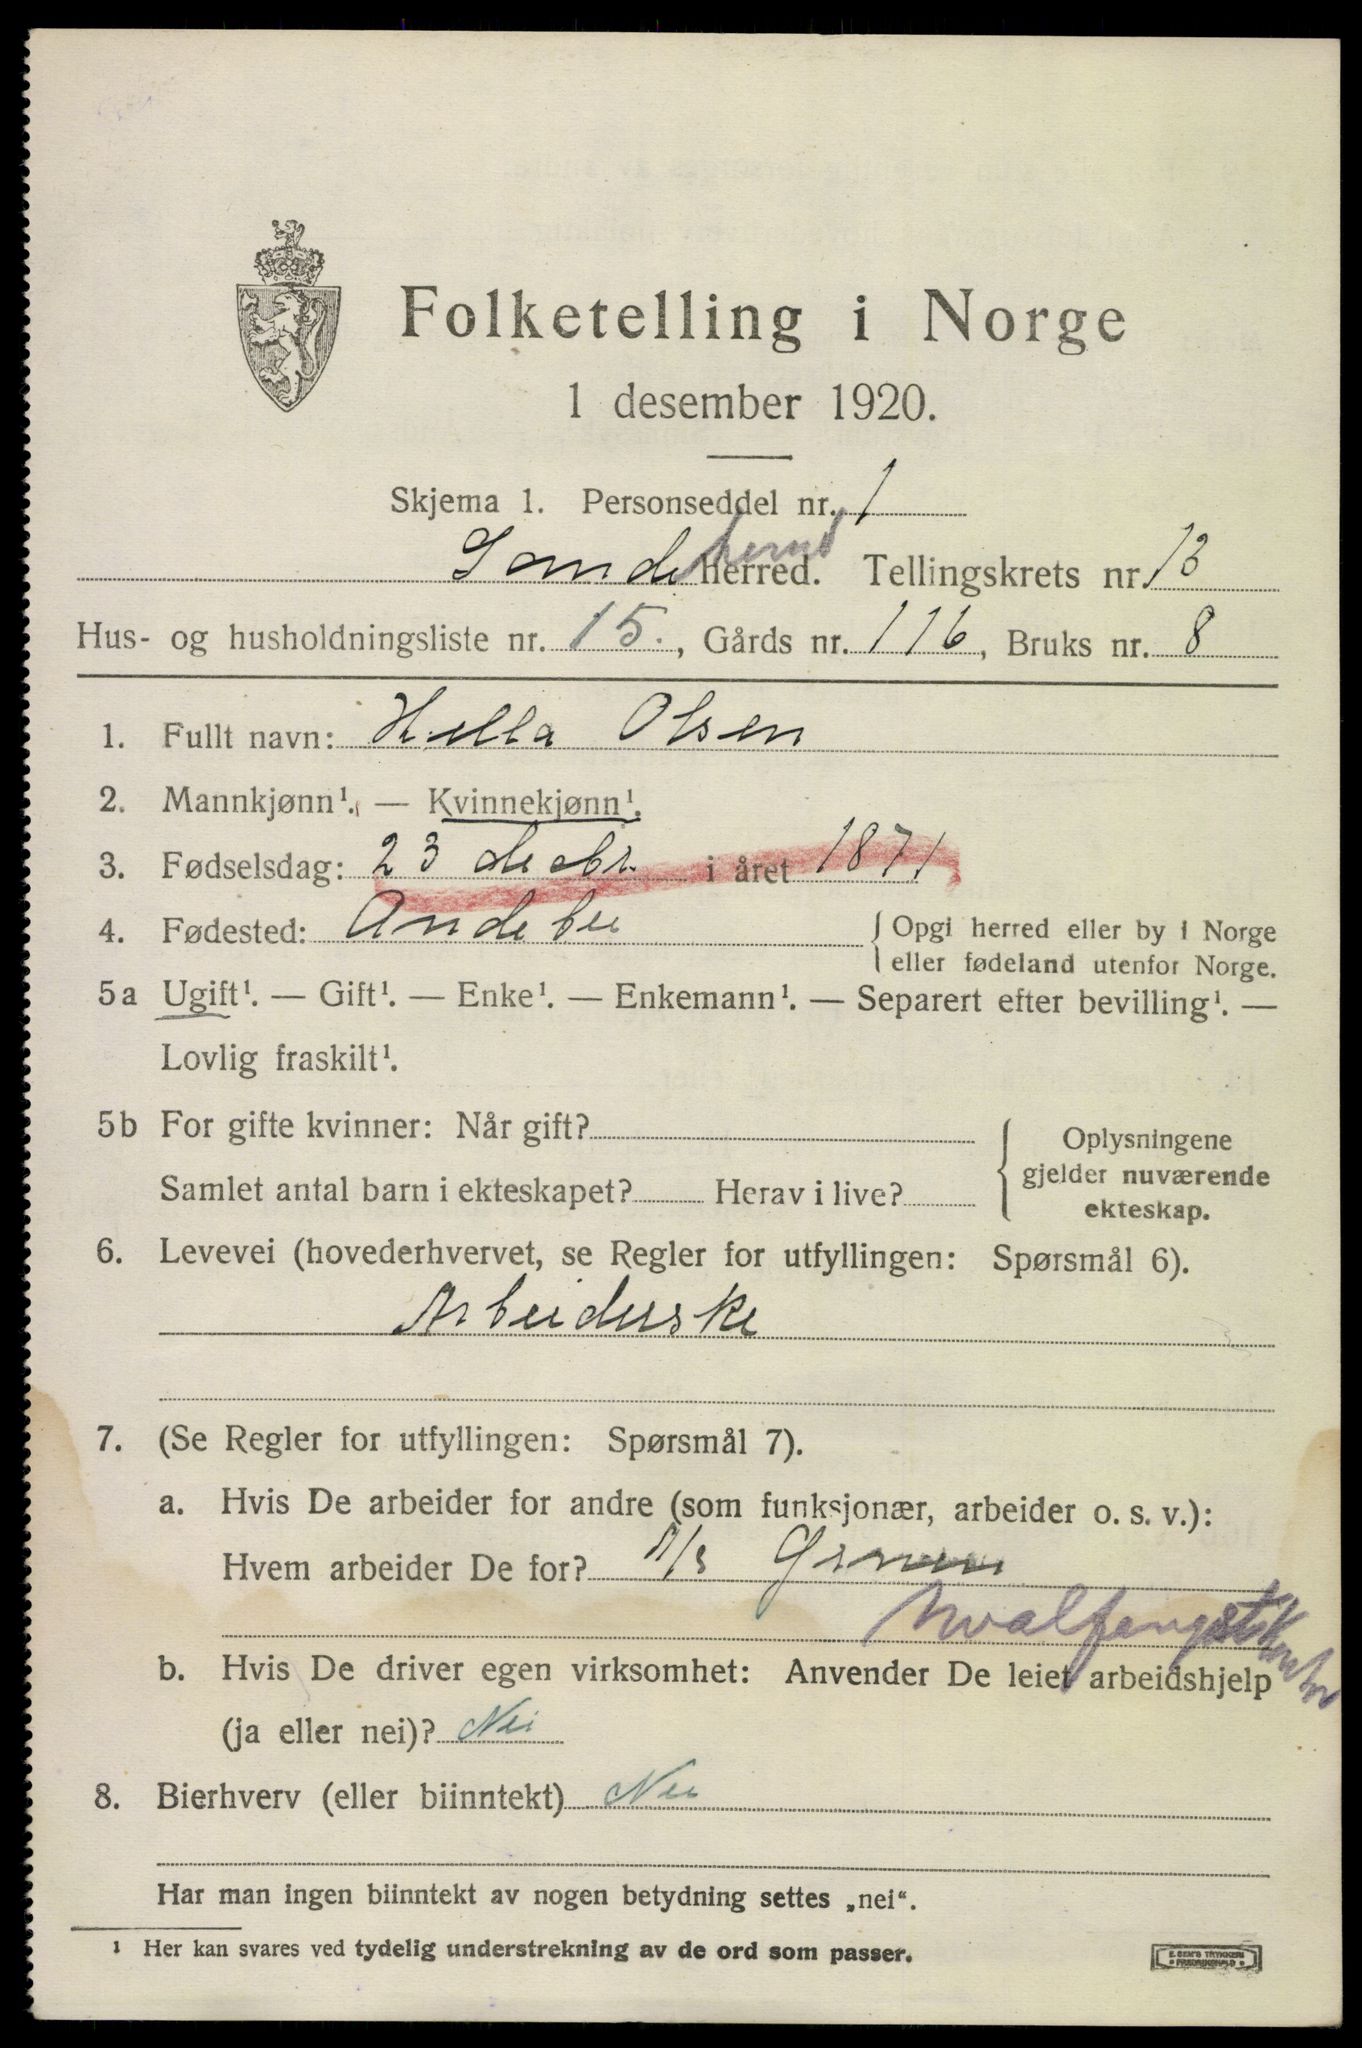 Folketelling i Norge
1 desember 1920.
Skjema 1. Personseddel nr. 1
Sandeherred herred. Tellingskrets nr. 13
Hus- og husholdningsliste nr. 15., Gårds nr. 116, Bruks nr. 8
1. Fullt navn: Hella Olsen
2. Mannkjønn¹. — Kvinnekjønn¹.
3. Fødselsdag: 23 decbr. i året 1871
4. Fødested: Andebu { Opgi herred eller by i Norge
eller fødeland utenfor Norge.
5a Ugift¹. — Gift¹. — Enke¹. — Enkemann¹. — Separert efter bevilling¹. —
Lovlig fraskilt¹.
5b For gifte kvinner: Når gift?
Samlet antal barn i ekteskapet? Herav i live?
{ Oplysningene
gjelder nuværende
ekteskap.
6. Levevei (hovederhvervet, se Regler for utfyllingen: Spørsmål 6).
Arbeiderske
7. (Se Regler for utfyllingen: Spørsmål 7).
a. Hvis De arbeider for andre (som funksjonær, arbeider o. s. v.):
Hvem arbeider De for? A/S
b. Hvis De driver egen virksomhet: Anvender De leiet arbeidshjelp
(ja eller nei)? Nei
8. Bierhverv (eller biinntekt) Nei
Har man ingen biinntekt av nogen betydning settes „nei“.
¹ Her kan svares ved tydelig understrekning av de ord som passer.